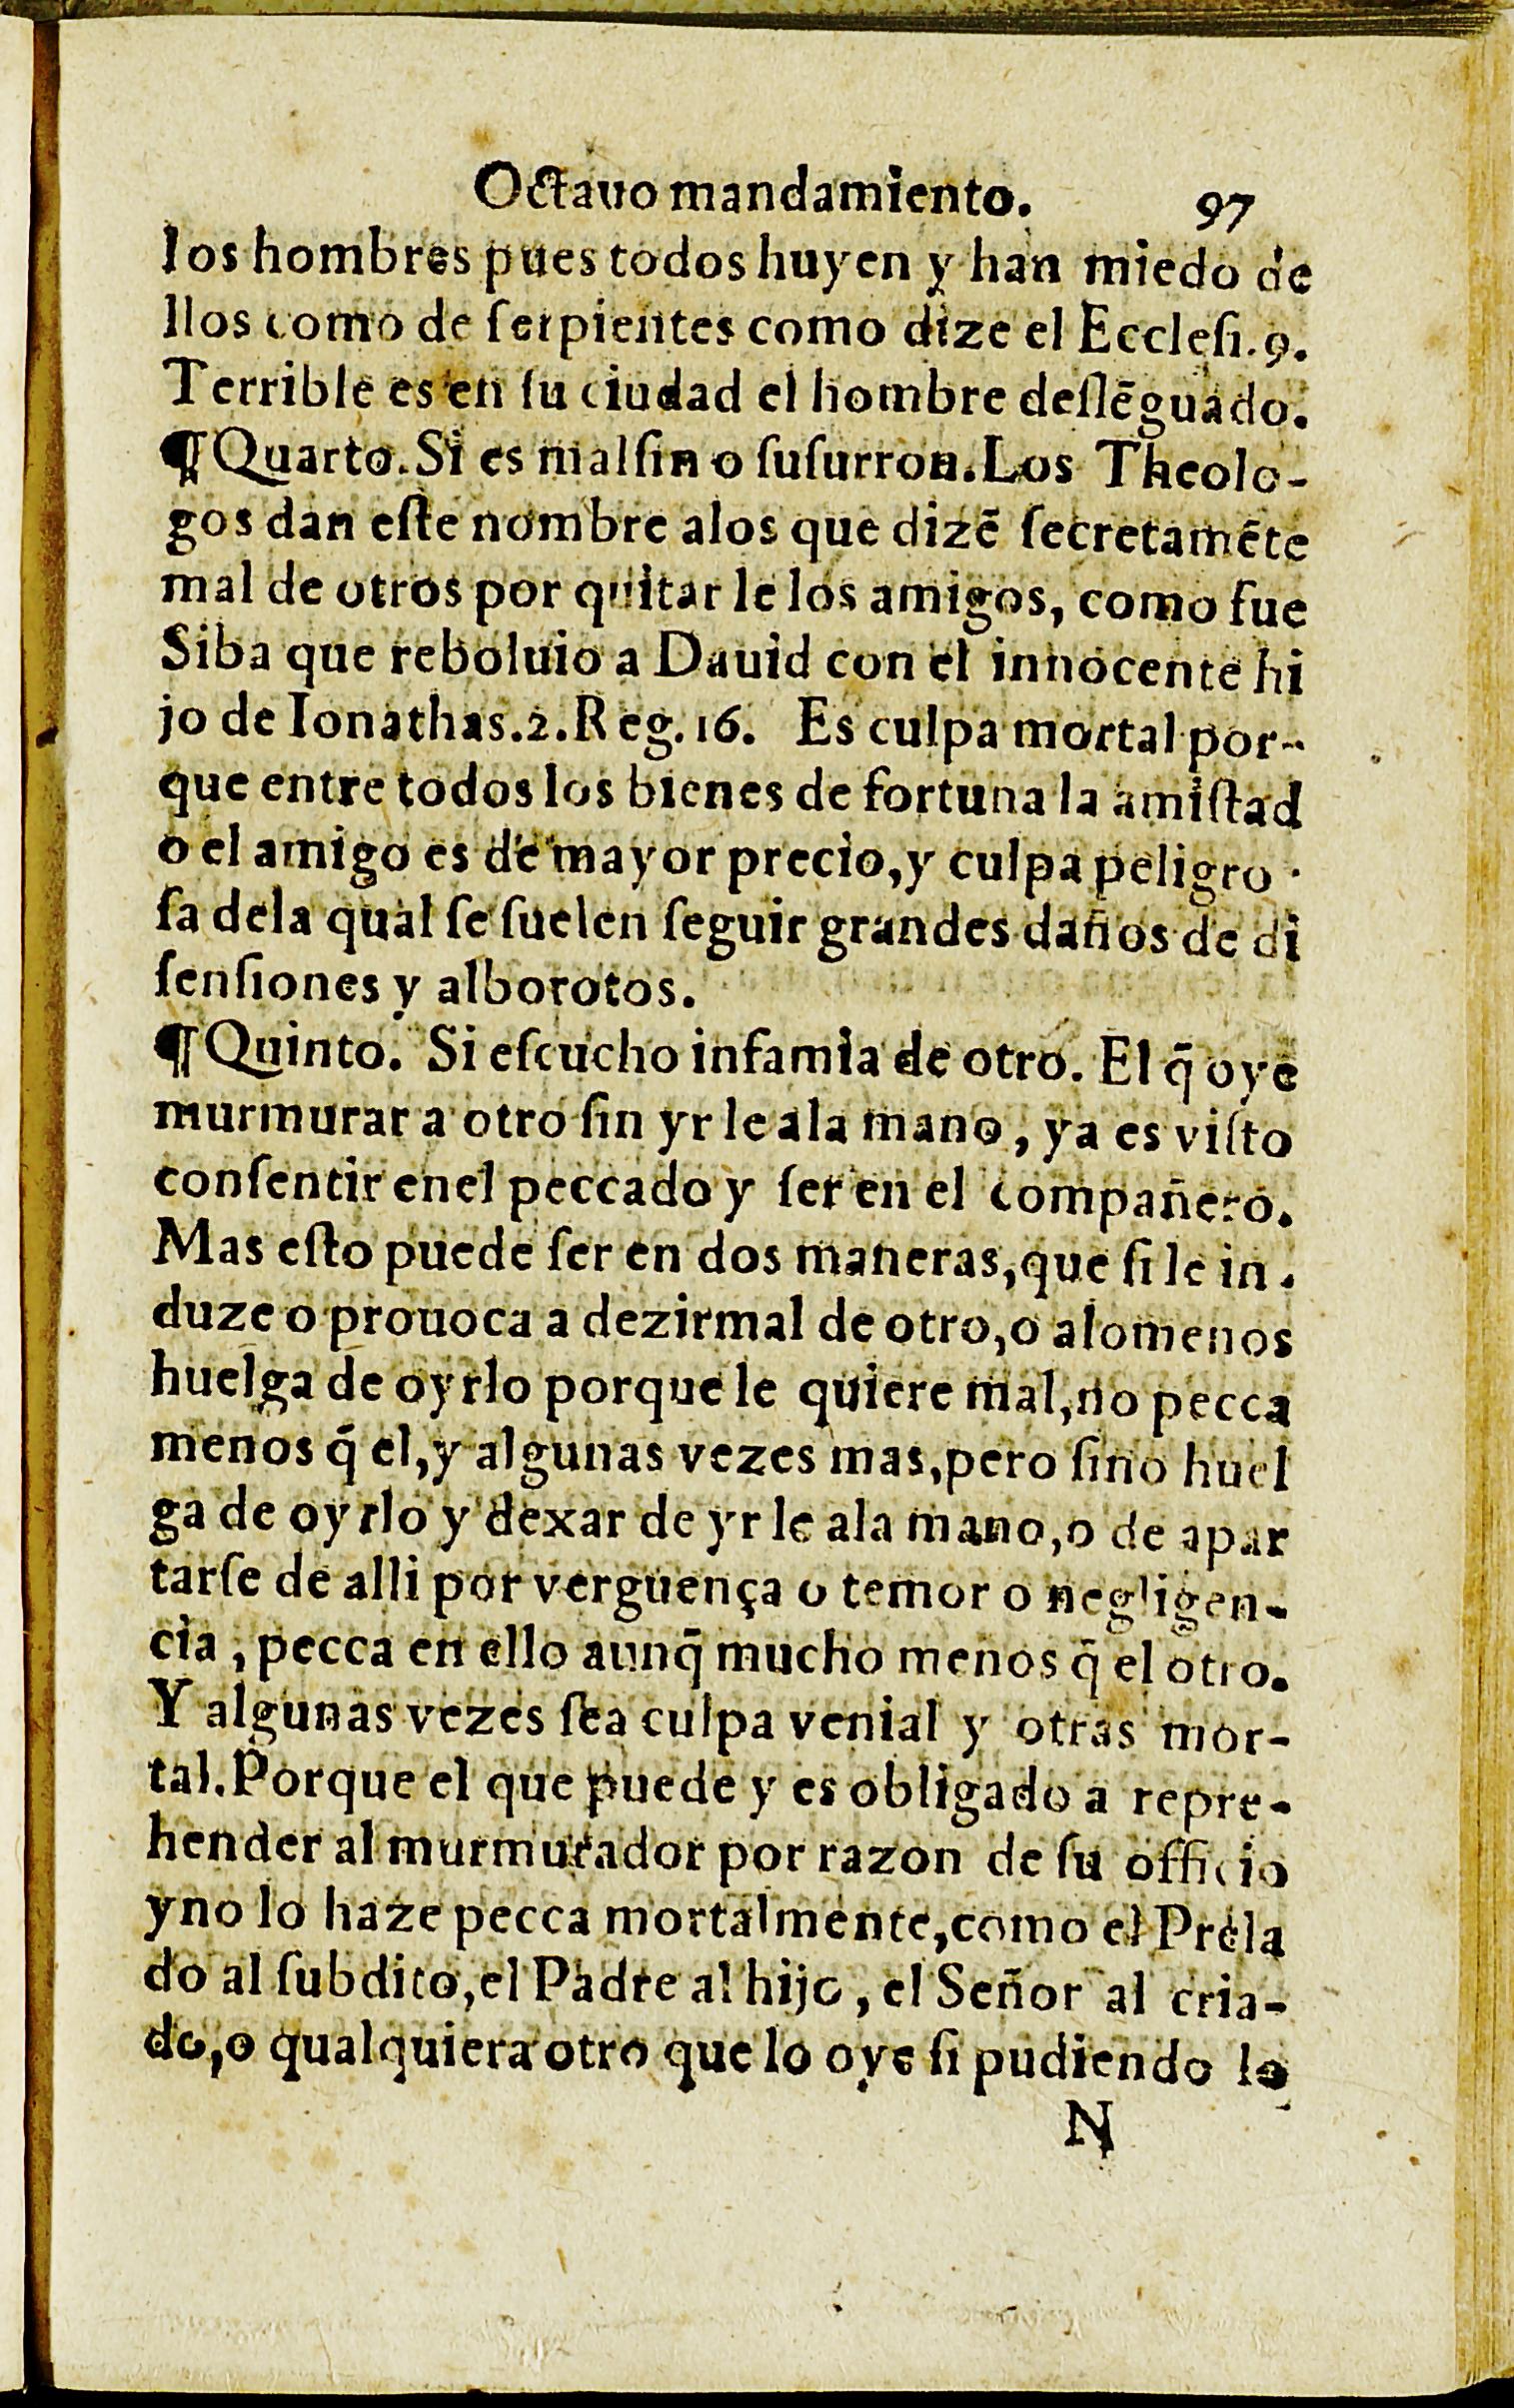 Octauo mandamiento. 97
los hombres pues todos huyen y han miedo de
llos como de ſerpientes como dize el Eccleſi.9.
Terrible es en ſu ciudad el hombre deſlẽguado.
¶Quarto.Si es malſin o ſuſurron.Los Theolo-
gos dan eſte nombre alos que dizẽ ſecretamẽte
mal de otros por quitar le los amigos, como fue
Siba que reboluio a Dauid con el innocente hi
jo de Ionathas.2.Reg.16. Es culpa mortal por-
que entre todos los bienes de fortuna la amiſtad
o el amigo es de mayor precio,y culpa peligro-
ſa dela qual ſe ſuelen ſeguir grandes daños de di
ſenſiones y alborotos.
¶Quinto. Si eſcucho infamia de otro. El q̃ oye
murmurar a otro ſin yr le ala mano, ya es viſto
conſentir enel peccado y ſer en el compañero.
Mas eſto puede ſer en dos maneras,que ſi le in-
duze o prouoca a dezirmal de otro,o alomenos
huelga de oyrlo porque le quiere mal,no pecca
menos q̃ el,y algunas vezes mas,pero ſino huel
ga de oyrlo y dexar de yr le ala mano,o de apar
tarſe de alli por verguença o temor o negligen-
cia, pecca en ello aunq̃ mucho menos q̃ el otro.
Y algunas vezes ſea culpa venial y otras mor-
tal.Porque el que puede y es obligado a repre-
hender al murmurador por razon de ſu officio
yno lo haze pecca mortalmente,como el Prela
do al ſubdito,el Padre al hijo, el Señor al cria-
do,o qualquiera otro que lo oye ſi pudiendo lo
N